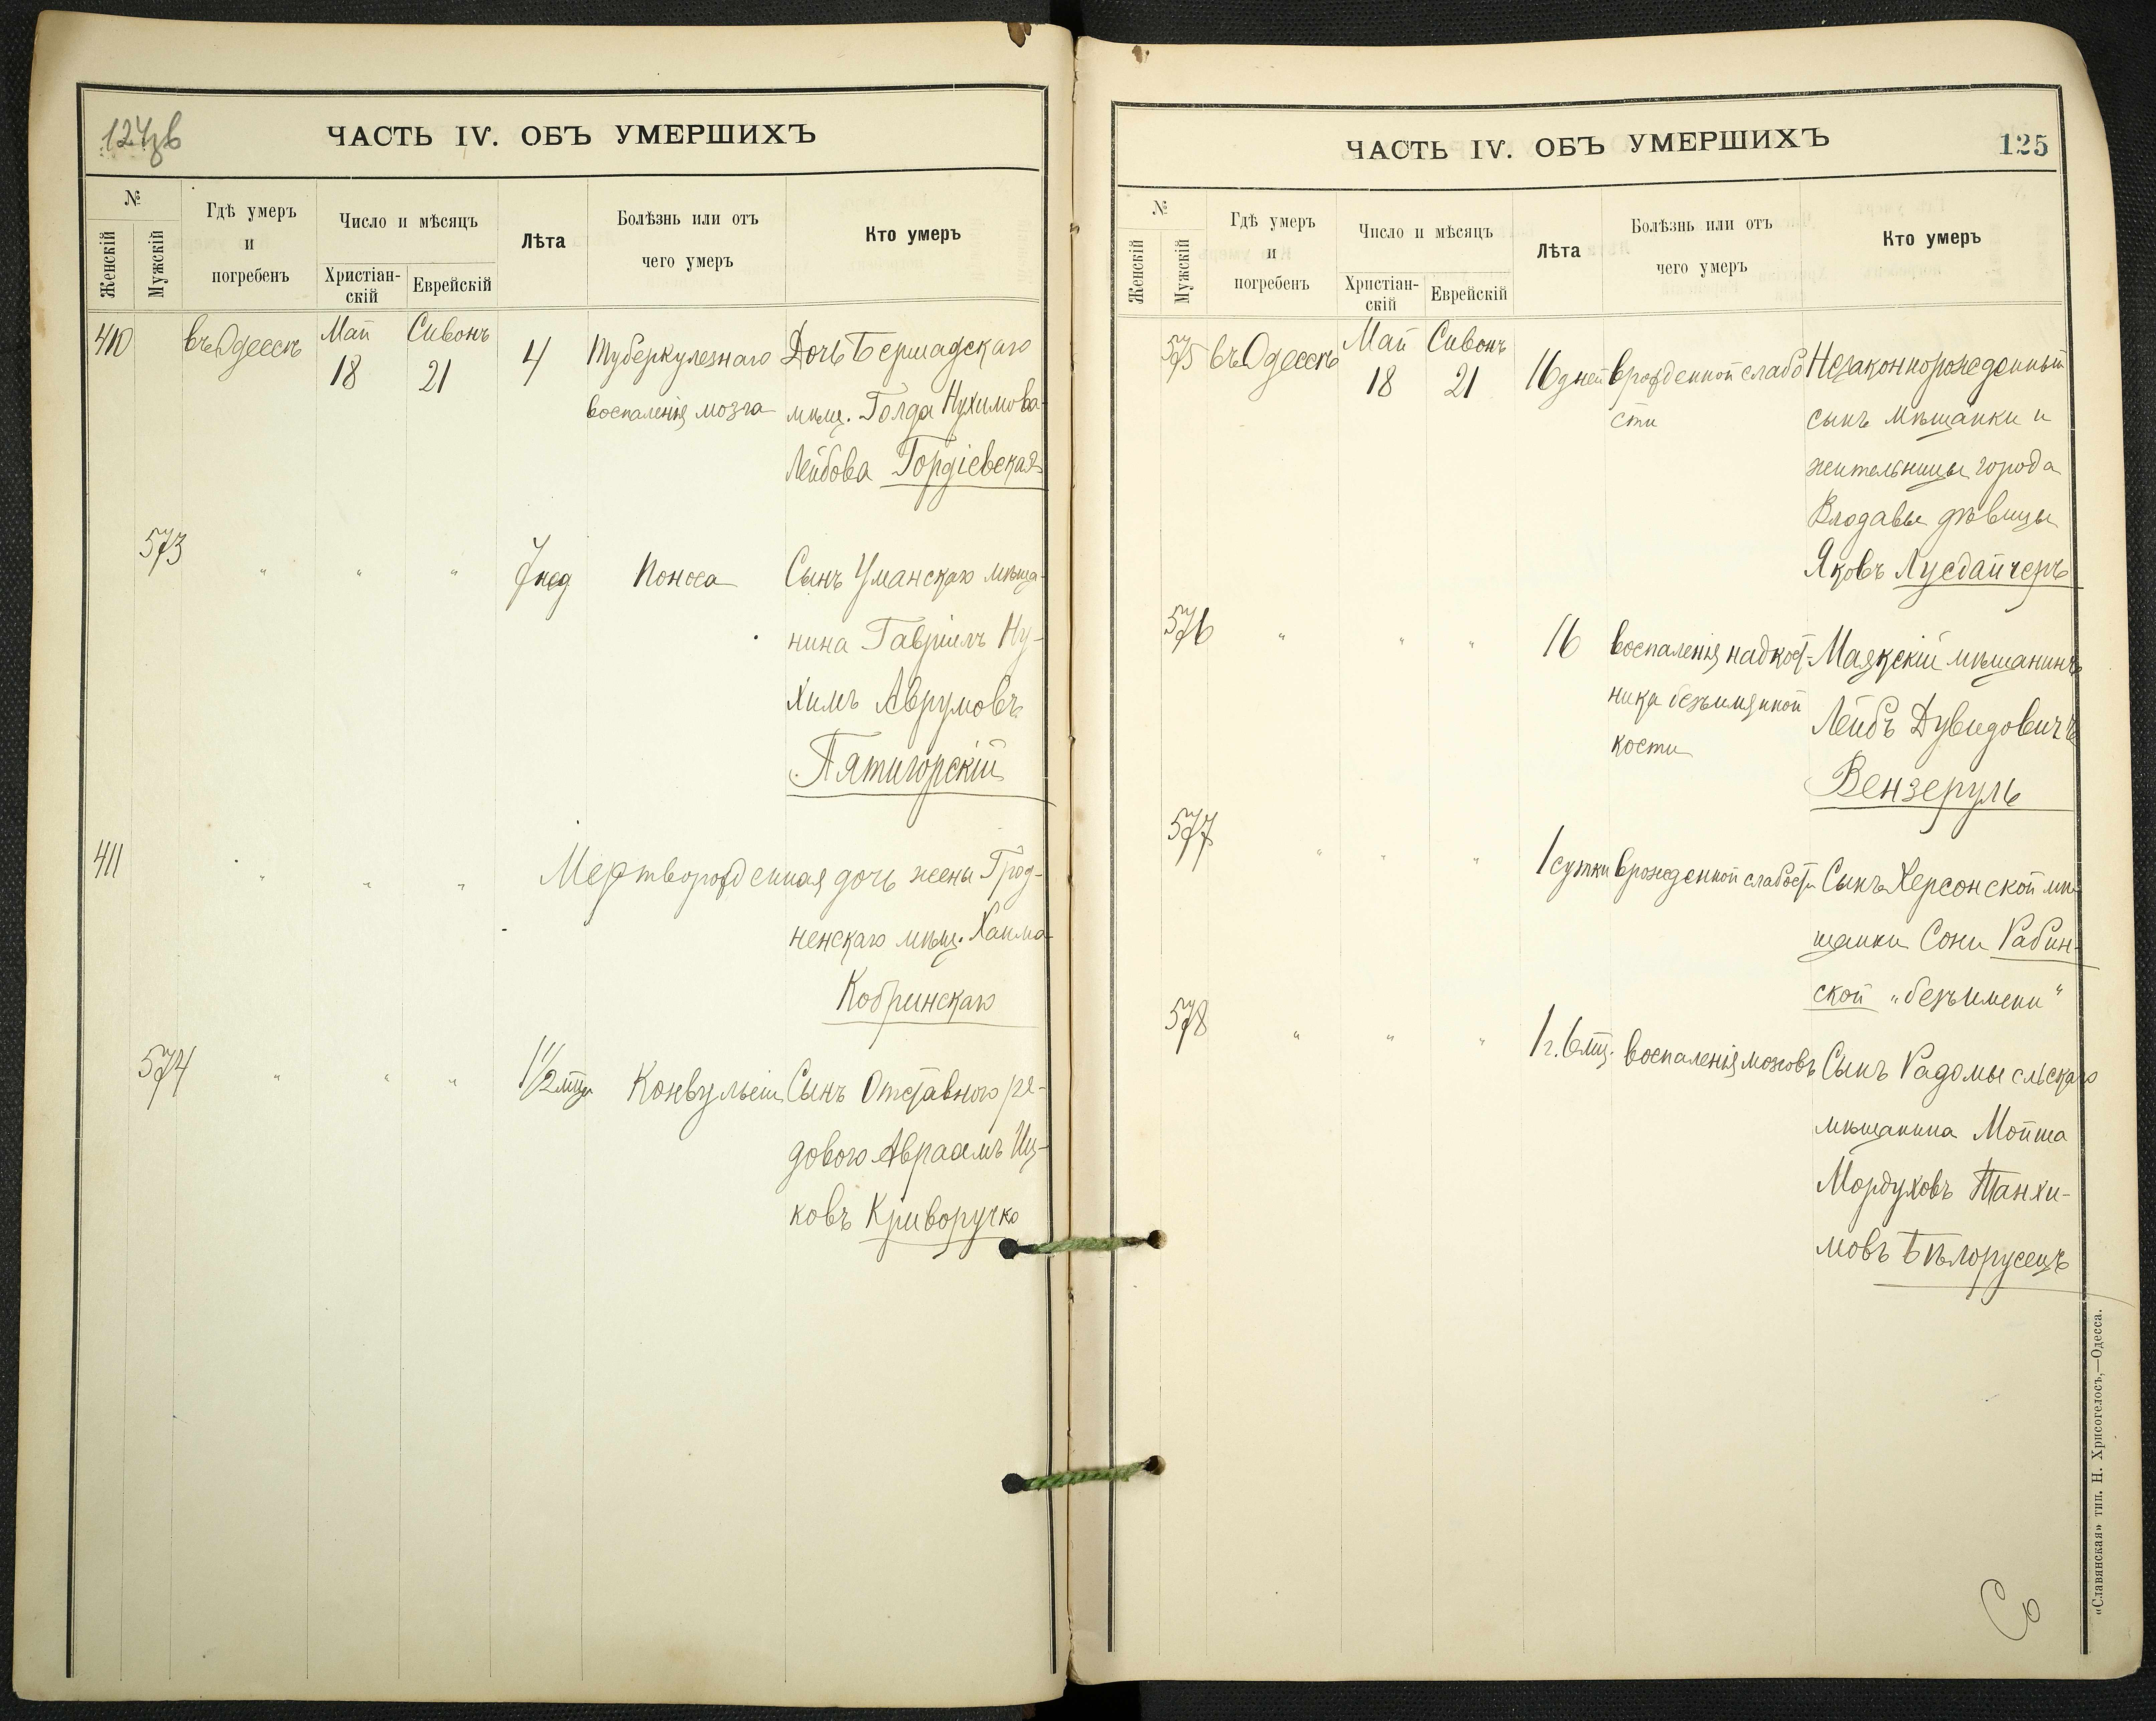 124зв
ЧАСТЬ IV. ОБЪ УМЕРШИХЪ
№
Женскій
Мужскій
Гдѣ умеръ
и
погребенъ
Число и мѣсяцъ
Христіан-
скій
Еврейскій
Лѣта
Болѣзнь или отъ
чего умеръ
Кто умеръ
410 въ Одессѣ Май 18 Сивонъ 21 4 Туберкулезнаго Дочь Бершадскаго
воспаленія мозга мѣщ. Голда Нухимова-
Лейбова Гордіевская
573 " " " 7 нед Поноса Сынъ Уманскаго мѣща-
нина Гавріилъ Ну-
химъ Аврумовъ
Пятигорскій
411 " " " Мертворожденная дочь жены Грод-
ненскаго мѣщ. Хаима
Кобринскаго
574 " " " 1½ мца Конвульсіи Сынъ Отставного ря-
дового Авраамъ Иц-
ковъ Криворучко
ЧАСТЬ IV. ОБЪ УМЕРШИХЪ
125
№
Женскій
Мужскій
Гдѣ умеръ
и
погребенъ
Число и мѣсяцъ
Христіан-
скій
Еврейскій
Лѣта
Болѣзнь или отъ
чего умеръ
Кто умеръ
575 въ Одессѣ Май 18 Сивонъ 21 16 дней врожденной слабо Незаконнорожденный
сти сынъ мѣщанки и
жительницы города
Влодавы дѣвицы
Яковъ Лусдайчеръ
576 " " " 16 воспаленія надкост- Маякскій мѣщанинъ
ника безъимянной Лейбъ Дувидовичъ
кости
Вензеруль
577 " " " 1 сутки врожденной слабости Сынъ Херсонской мѣ-
щанки Сони Рабин-
ской „безъ имени"
578 " " " 1 г. 6 мц. воспаленія мозговъ Сынъ Радомысльскаго
мѣщанина Мойша
Мордуховъ Танхи-
мовъ Бѣлорусецъ
«Славянская» тип. Н. Хрисогелосъ,—Одесса.